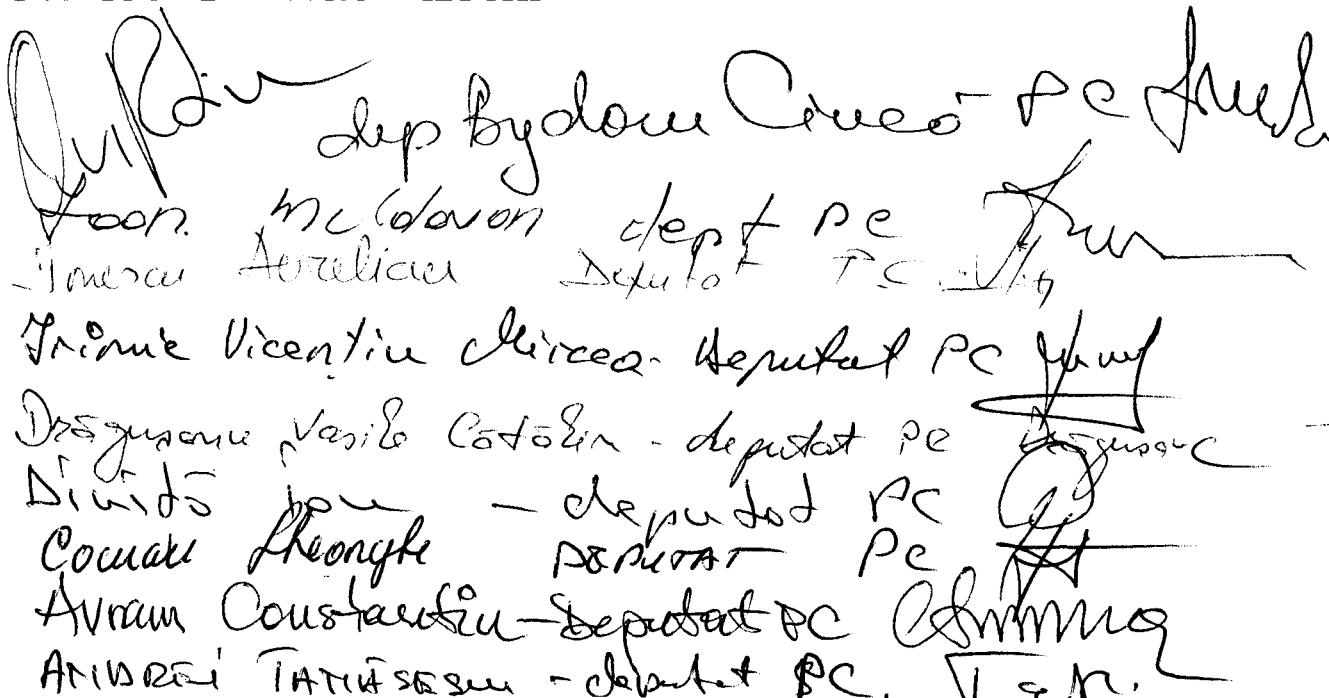 dep Bogdan Ciucă - PC
Ioan Moldovan dept PC
Ionescu Aurelian Deputat PC
Irimie Vicențiu Mircea - deputat PC
Drăgușanu Vasile Cătălin - deputat PC Drăgușanu
Diniță Ion - deputat PC
Coman Gheorghe DEPUTAT PC
Avram Constantin - Deputat PC
ANDREI TĂNĂSESCU - deputat PC.